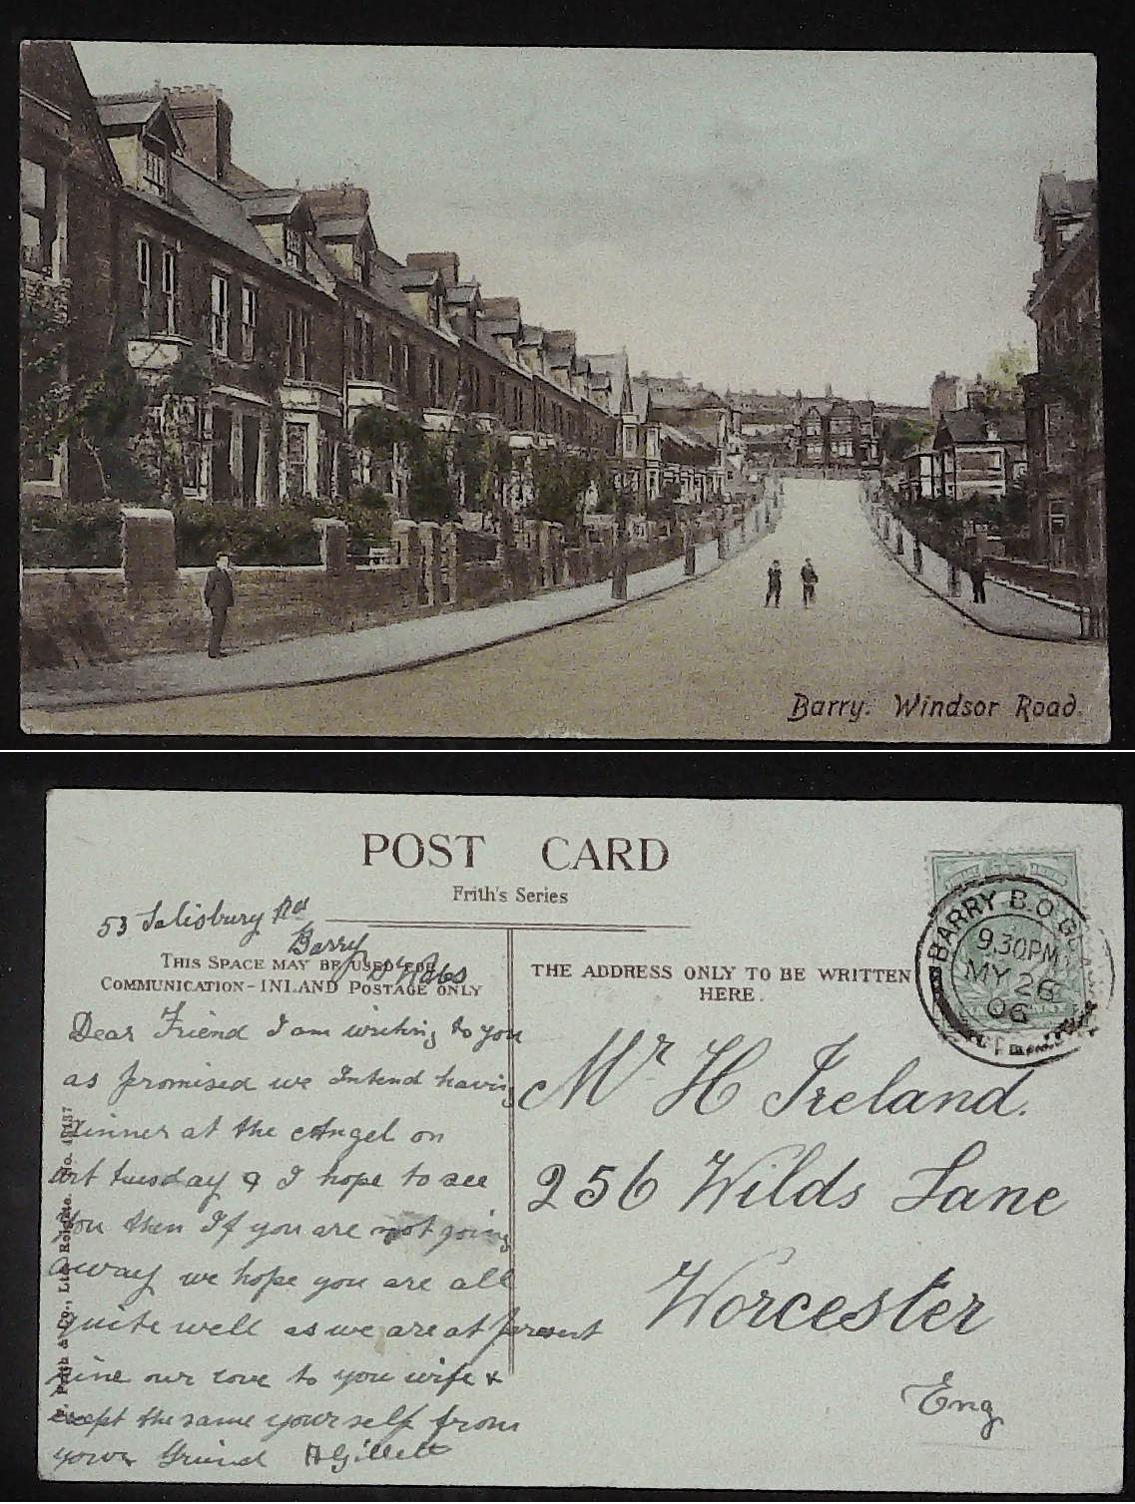 Barry. Windsor Road.
POST CARD
Frith's Series
53 Salisbury Rd
Barry
S Wales
THIS SPACE MAY BE USED FOR
COMMUNICATION-INLAND POSTAGE ONLY
THE ADDRESS ONLY TO BE WRITTEN
HERE.
BARRY B.O
9.30PM
MY 26
06
Dear Friend I am writing to you
as promised we Intend having
dinner at the Angel on
tuesday & I hope to see
you then If you are not going
away we hope you are all
quite well as we are at present
our love to you wife &
the same yourself from
your friend A Gillett
Mr H Ireland.
256 Wilds Lane
Worcester
Eng
Frith & Co., Ltd. Reigate. No.